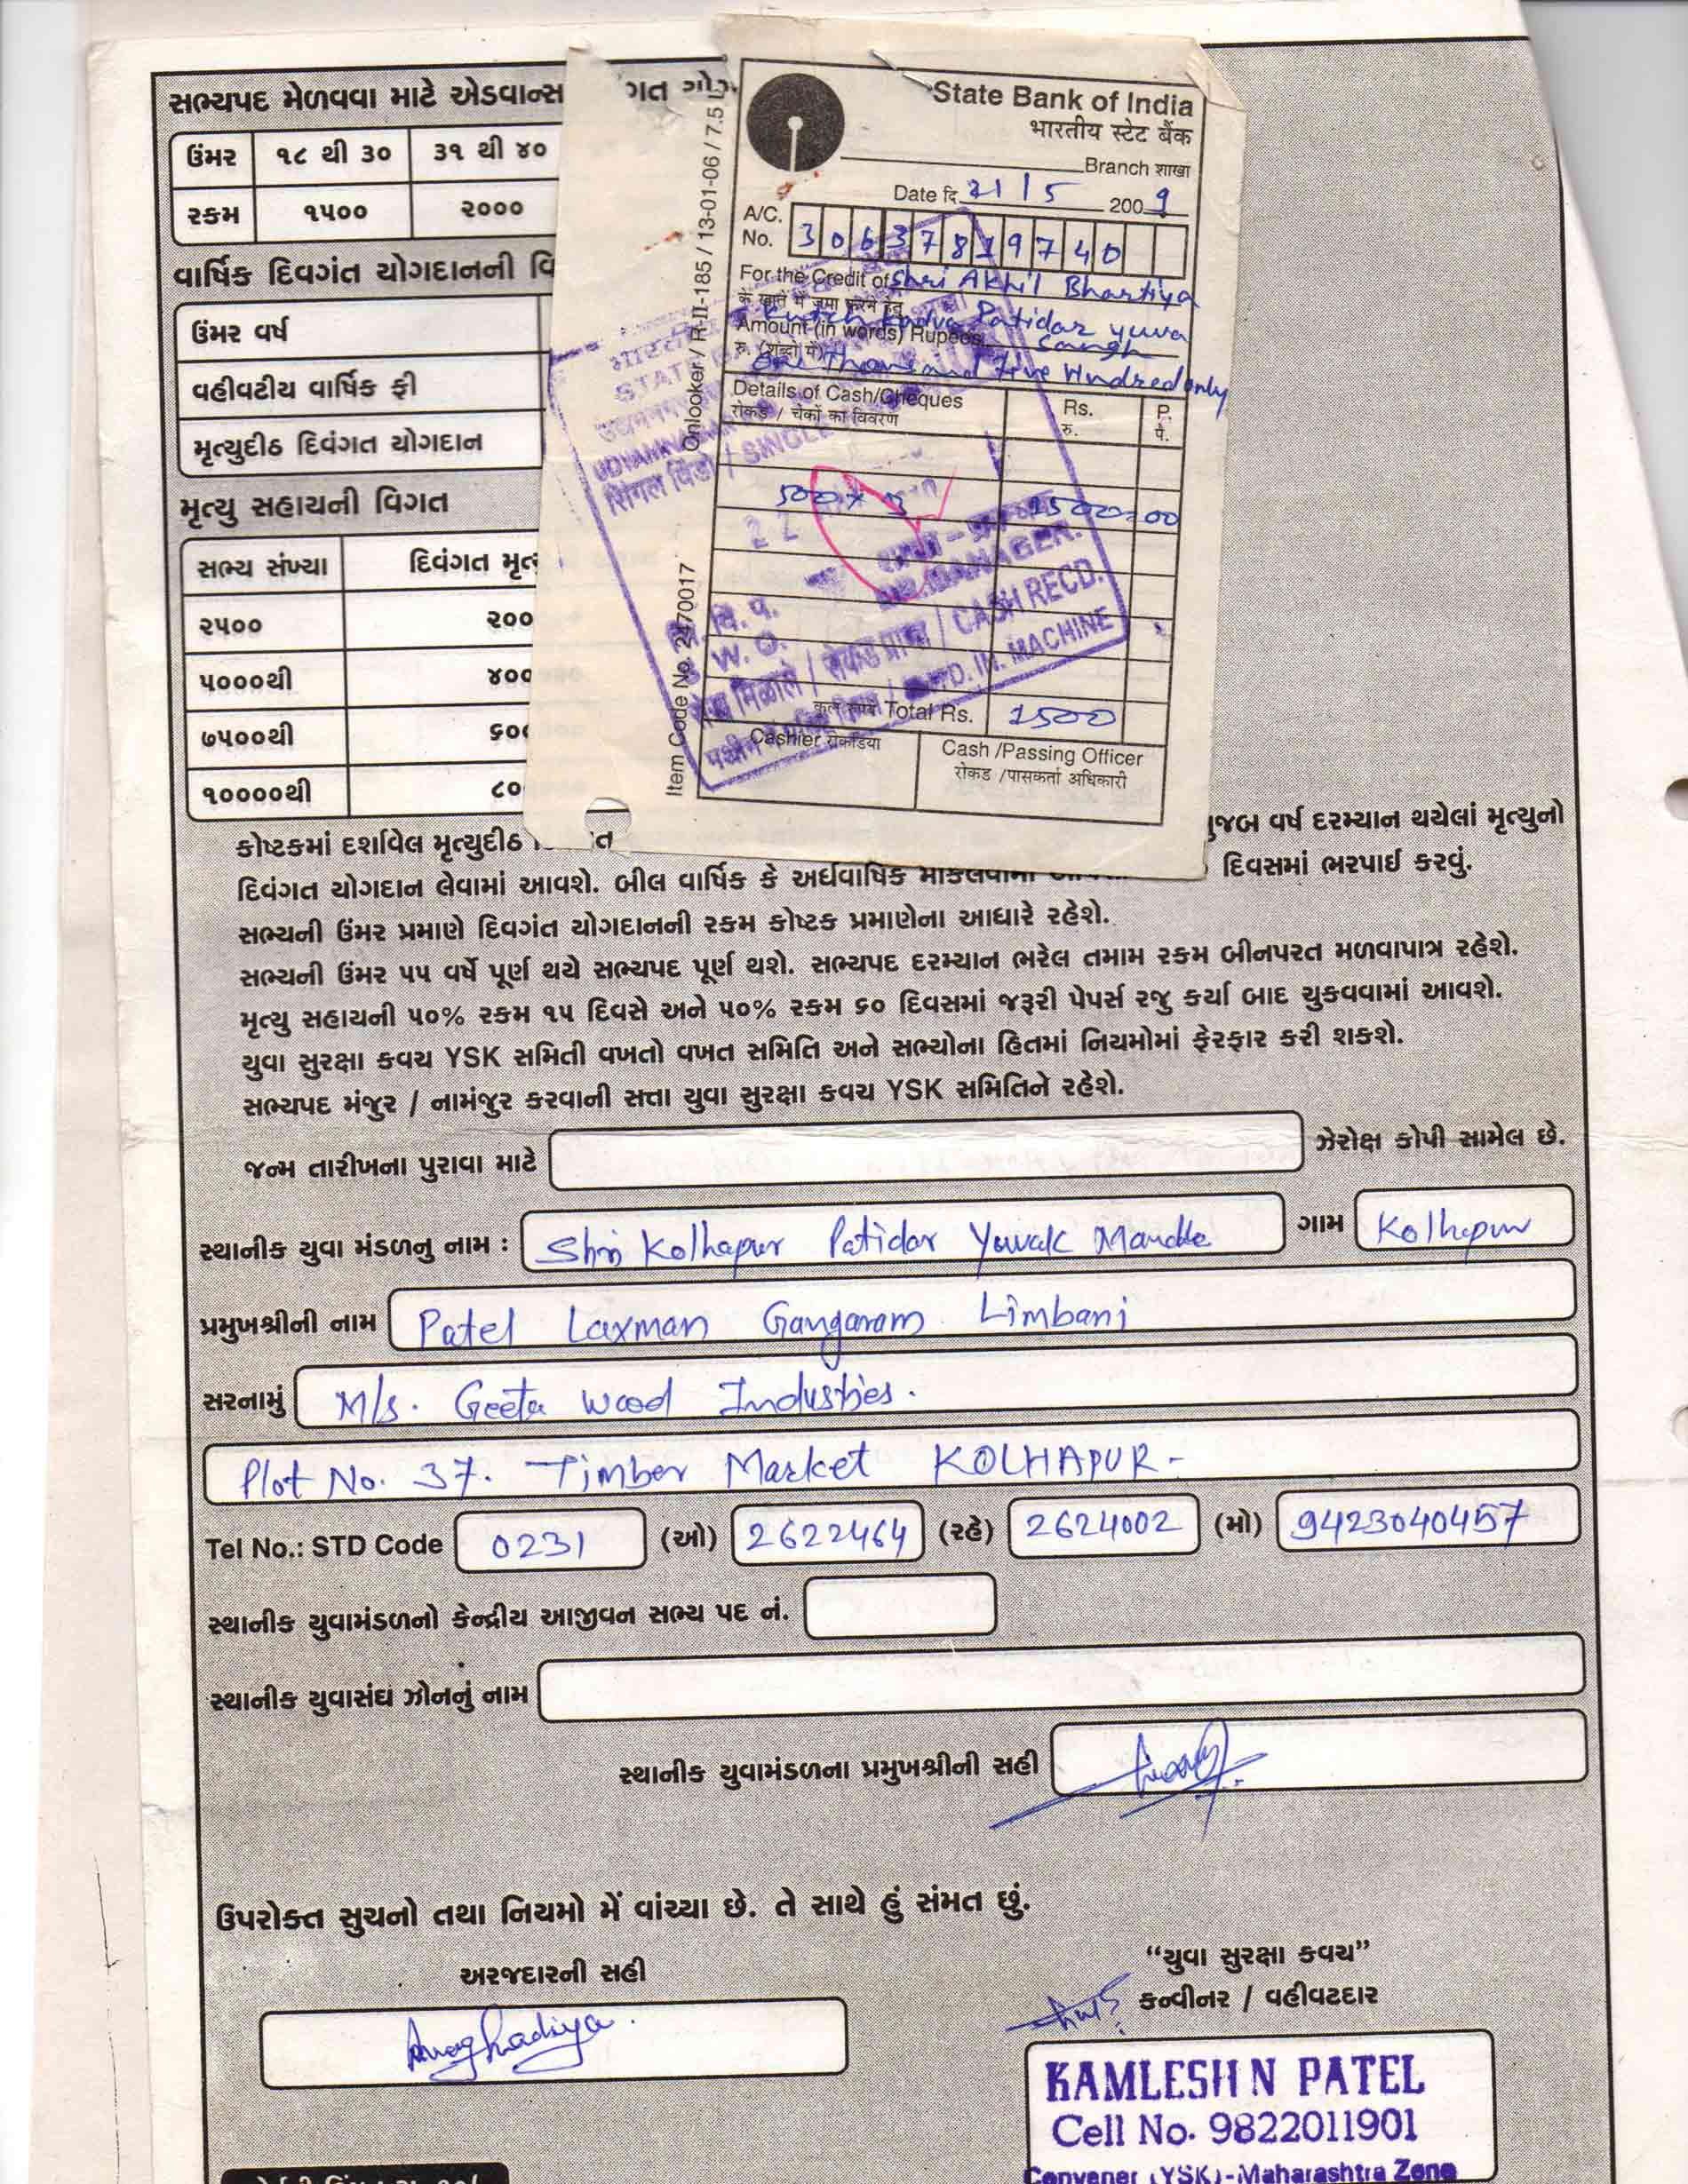 સભ્યપદ મેળવવા માટે એડવાન્સ
ઉંમર ૧૮ થી ૩૦ ૩૧ થી ૪૦
રકમ ૧૫૦૦ ૨૦૦૦
વાર્ષિક દિવગંત યોગદાનની વિ
ઉંમર વર્ષ
વહીવટીય વાર્ષિક ફી
મૃત્યુદીઠ દિવંગત યોગદાન
મૃત્યુ સહાયની વિગત
સભ્ય સંખ્યા દિવંગત મૃત્
૨૫૦૦ ૨૦૦
૫૦૦૦થી ૪૦૦
૭૫૦૦થી ૬૦૦
૧૦૦૦૦થી ૮૦
Onlooker / R-II-185 / 13-01-06 / 7.5 L
Item Code No. 2470017
State Bank of India
भारतीय स्टेट बैंक
Branch शाखा
Date दि. 21 / 5 2009
A/C. No. 30637819740
For the Credit of Shri Akhil Bhartiya
के खाते में जमा करने हेतु
Kutch Kadva Patidar yuva
Amount (in words) Rupees Sangh
रु. (शब्दों में)
One Thousand Five Hundred only
Details of Cash/Cheques Rs. P.
रोकड / चेकों का विवरण रु. पै.
500 x 3 1500=00
BR.MANAGER.
S. W. O.
CASH RECD.
IN. MACHINE
Total Rs. 1500
Cashier रोकडिया Cash /Passing Officer
रोकड /पासकर्ता अधिकारी
કોષ્ટકમાં દર્શાવેલ મૃત્યુદીઠ મુજબ વર્ષ દરમ્યાન થયેલાં મૃત્યુનો
દિવંગત યોગદાન લેવામાં આવશે. બીલ વાર્ષિક કે અર્ધવાર્ષિક મોકલવામાં દિવસમાં ભરપાઈ કરવું.
સભ્યની ઉંમર પ્રમાણે દિવગંત યોગદાનની રકમ કોષ્ટક પ્રમાણેના આધારે રહેશે.
સભ્યની ઉંમર ૫૫ વર્ષે પૂર્ણ થયે સભ્યપદ પૂર્ણ થશે. સભ્યપદ દરમ્યાન ભરેલ તમામ રકમ બીનપરત મળવાપાત્ર રહેશે.
મૃત્યુ સહાયની ૫૦% રકમ ૧૫ દિવસે અને ૫૦% રકમ ૬૦ દિવસમાં જરૂરી પેપર્સ રજુ કર્યા બાદ ચુકવવામાં આવશે.
યુવા સુરક્ષા કવચ YSK સમિતી વખતો વખત સમિતિ અને સભ્યોના હિતમાં નિયમોમાં ફેરફાર કરી શકશે.
સભ્યપદ મંજુર / નામંજુર કરવાની સત્તા યુવા સુરક્ષા કવચ YSK સમિતિને રહેશે.
જન્મ તારીખના પુરાવા માટે ઝેરોક્ષ કોપી સામેલ છે.
સ્થાનીક યુવા મંડળનુ નામ : Shri Kolhapur Patidar Yuvak Mandle ગામ Kolhapur
પ્રમુખશ્રીની નામ Patel Laxman Gangaram Limbani
સરનામું M/s. Geeta Wood Industries.
Plot No. 37. Timber Market KOLHAPUR-
Tel No.: STD Code 0231 (ઓ) 2622464 (રહે) 2624002 (મો) 9423040457
સ્થાનીક યુવામંડળનો કેન્દ્રીય આજીવન સભ્ય પદ નં.
સ્થાનીક યુવાસંઘ ઝોનનું નામ
સ્થાનીક યુવામંડળના પ્રમુખશ્રીની સહી
ઉપરોક્ત સુચનો તથા નિયમો મેં વાંચ્યા છે. તે સાથે હું સંમત છું.
અરજદારની સહી
"યુવા સુરક્ષા કવચ"
કન્વીનર / વહીવટદાર
KAMLESH N PATEL
Cell No. 9822011901
Convener (YSK)-Maharashtra Zone